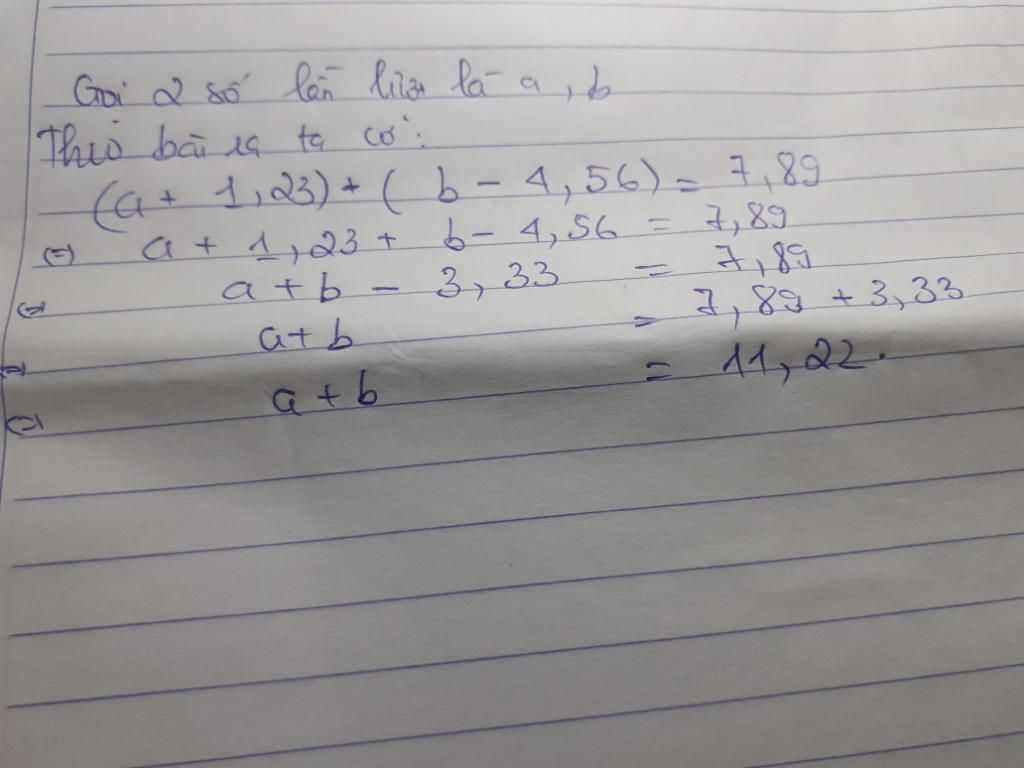 Gọi 2 số lần lượt là a, b
Theo bài ra ta có:
(a + 1,23) + ( b - 4,56) = 7,89
(=) a + 1,23 + b - 4,56 = 7,89
(=) a + b - 3,33 = 7,89
(=) a + b = 7,89 + 3,33
(=) a + b = 11,22.